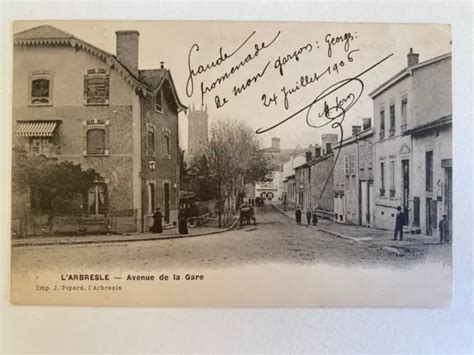 Grande
promenade
de mon garçon: Georges
24 juillet 1906
L'ARBRESLE — Avenue de la Gare
Imp. J. Pipard, l'Arbresle